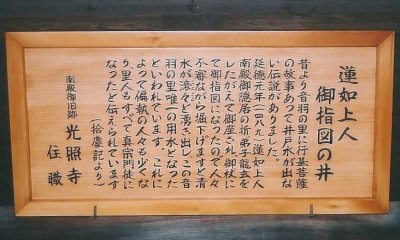 蓮如上人
御指図の井
昔より音羽の里に行基菩薩
の故事あって井戸水が出な
い伝説がありました。
延徳元年(一四八九)蓮如上人
南殿御隠居の折弟子龍玄を
したがえて御座され御杖に
て御指図になったので人々
不審ながら掘下げますと清
水が滾々と湧き出しこの音
羽の里唯一の用水となった
といわれています。これに
よって偏執の人々も少くな
り里人もすべて真宗門徒に
なったと伝えられています
(拾塵記より)
南殿御旧跡
光照寺
住職